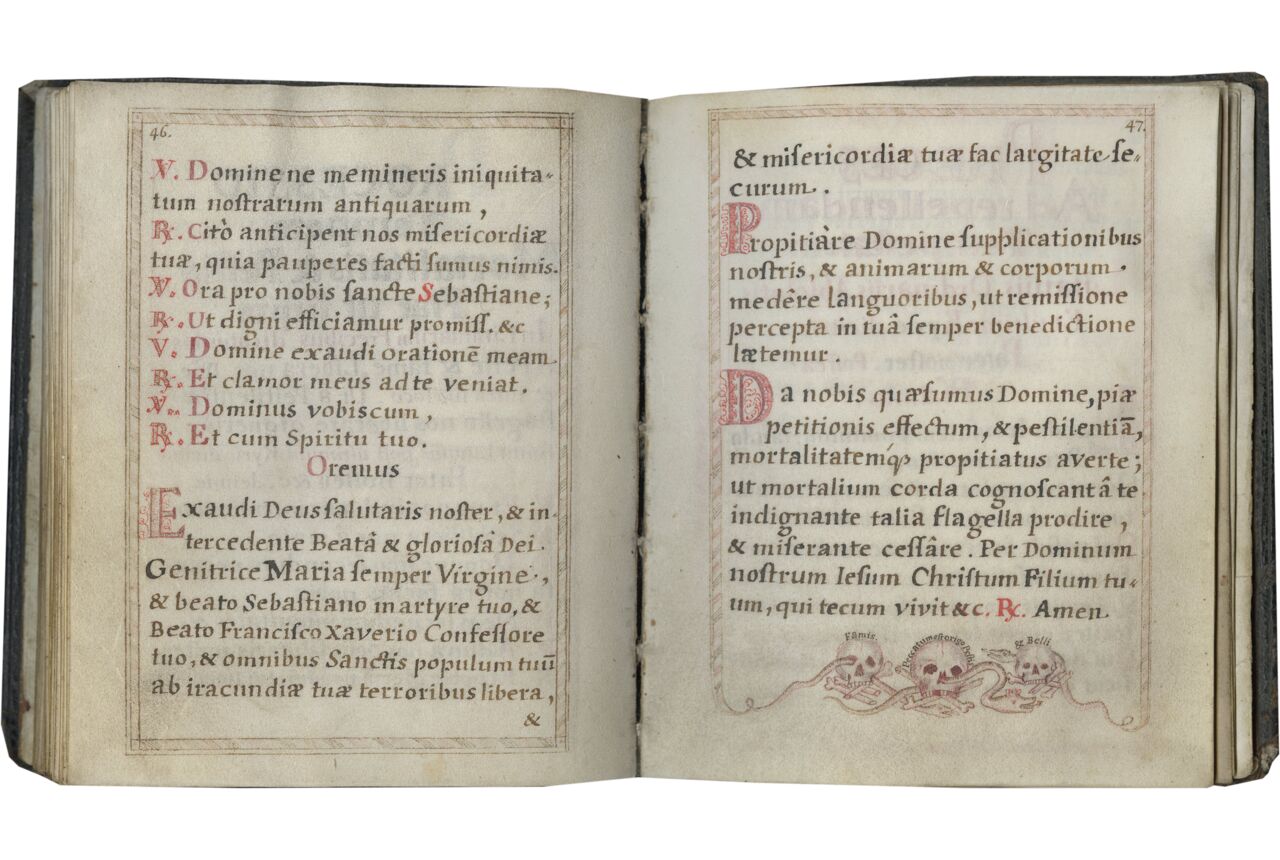 46.
℣. Domine ne memineris iniquita-
tum noſtrarum antiquarum,
℟. Citò anticipent nos miſericordiæ
tuæ, quia pauperes facti ſumus nimis.
℣. Ora pro nobis ſancte Sebaſtiane;
℟. Ut digni efficiamur promiſſ. &c
V. Domine exaudi orationē meam.
℟. Et clamor meus ad te veniat.
℣. Dominus vobiscum,
℟. Et cum Spiritu tuo.
Oremus
Exaudi Deus ſalutaris noſter, & in-
tercedente Beatâ & glorioſâ Dei
Genitrice Maria ſemper Virgine,
& beato Sebaſtiano martyre tuo, &
Beato Franciſco Xaverio Confeſſore
tuo, & omnibus Sanctis populum tuū
ab iracundiæ tuæ terroribus libera,
&
47.
& miſericordiæ tuæ fac largitate ſe-
curum.
Propitiàre Domine ſupplicationibus
noſtris, & animarum & corporum
medêre languoribus, ut remiſſione
percepta in tuâ ſemper benedictione
lætemur.
Da nobis quæſumus Domine, piæ
petitionis effectum, & peſtilentiā,
mortalitatemq́ꝫ propitiatus averte;
ut mortalium corda cognoſcant â te
indignante talia flagella prodire,
& miſerante ceſſâre. Per Dominum
noſtrum Ieſum Chriſtum Filium tu-
um, qui tecum vivit &c. ℟. Amen
Famis. Peccatum eſt origo Peſtis & Belli